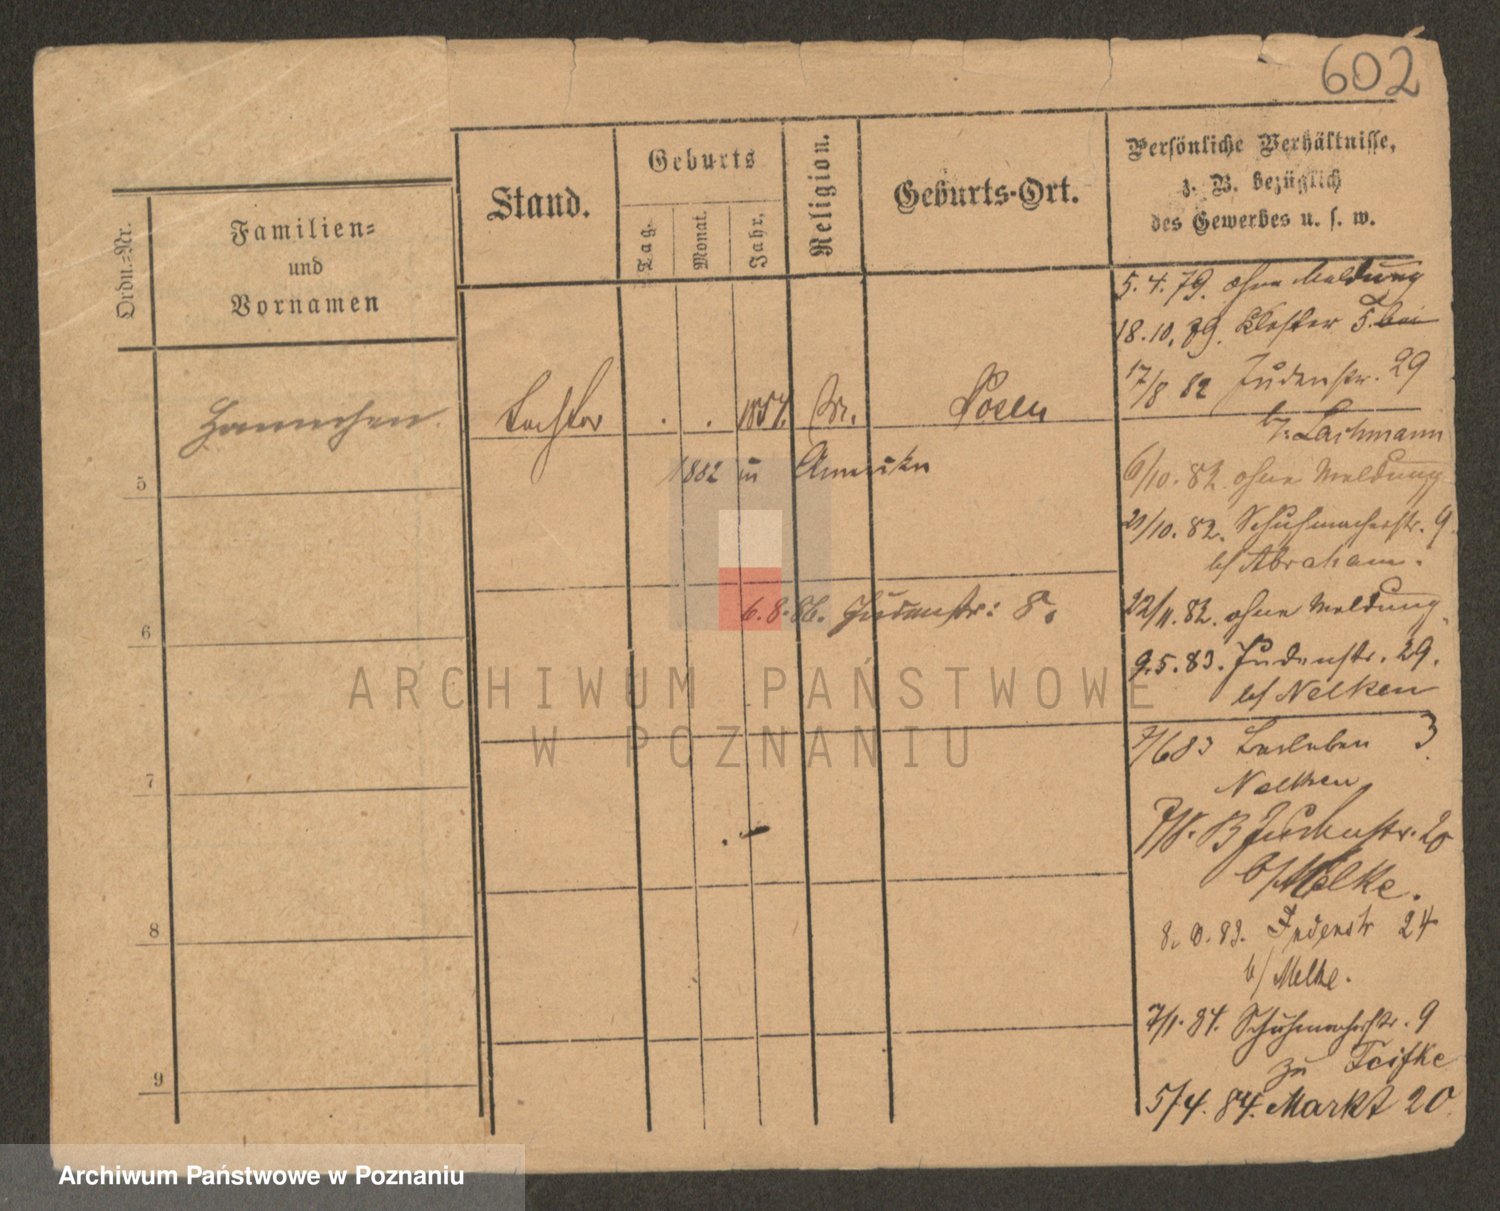 602
Ordn.=Nr.
Familien=
und
Vornamen
Stand.
Geburts
Tag.
Monat.
Jahr,
Religion.
Geburts-Ort.
Persönliche Verhältnisse,
z. B. bezüglich
des Gewerbes u. s. w.
5. 4. 79. ohne Meldung
18. 10. 79. Kloster 5. bei
17/8 82 Judenstr. 29
b/ Lachmann
Hannchen
Tochter . . 1857. Posen
5
1882 in Amerika
6/10. 82. ohne Meldung
21/10. 82. Schuhmacherstr. 9
b/ Abraham.
6
6. 8. 86. Judenstr: 8.
22/11. 82. ohne Meldung.
9. 5. 83. Judenstr. 29.
b/ Nelken
ARCHIWUM PAŃSTWOWE
W POZNANIU
7/6 83 3
Nelken
7
Judenstr. 20
b/ Melke.
8
83. Judenstr 24
b/ Melke.
7/1. 84. Schuhmacherstr. 9
zu
9
5/4. 84. Markt 20
Archiwum Państwowe w Poznaniu